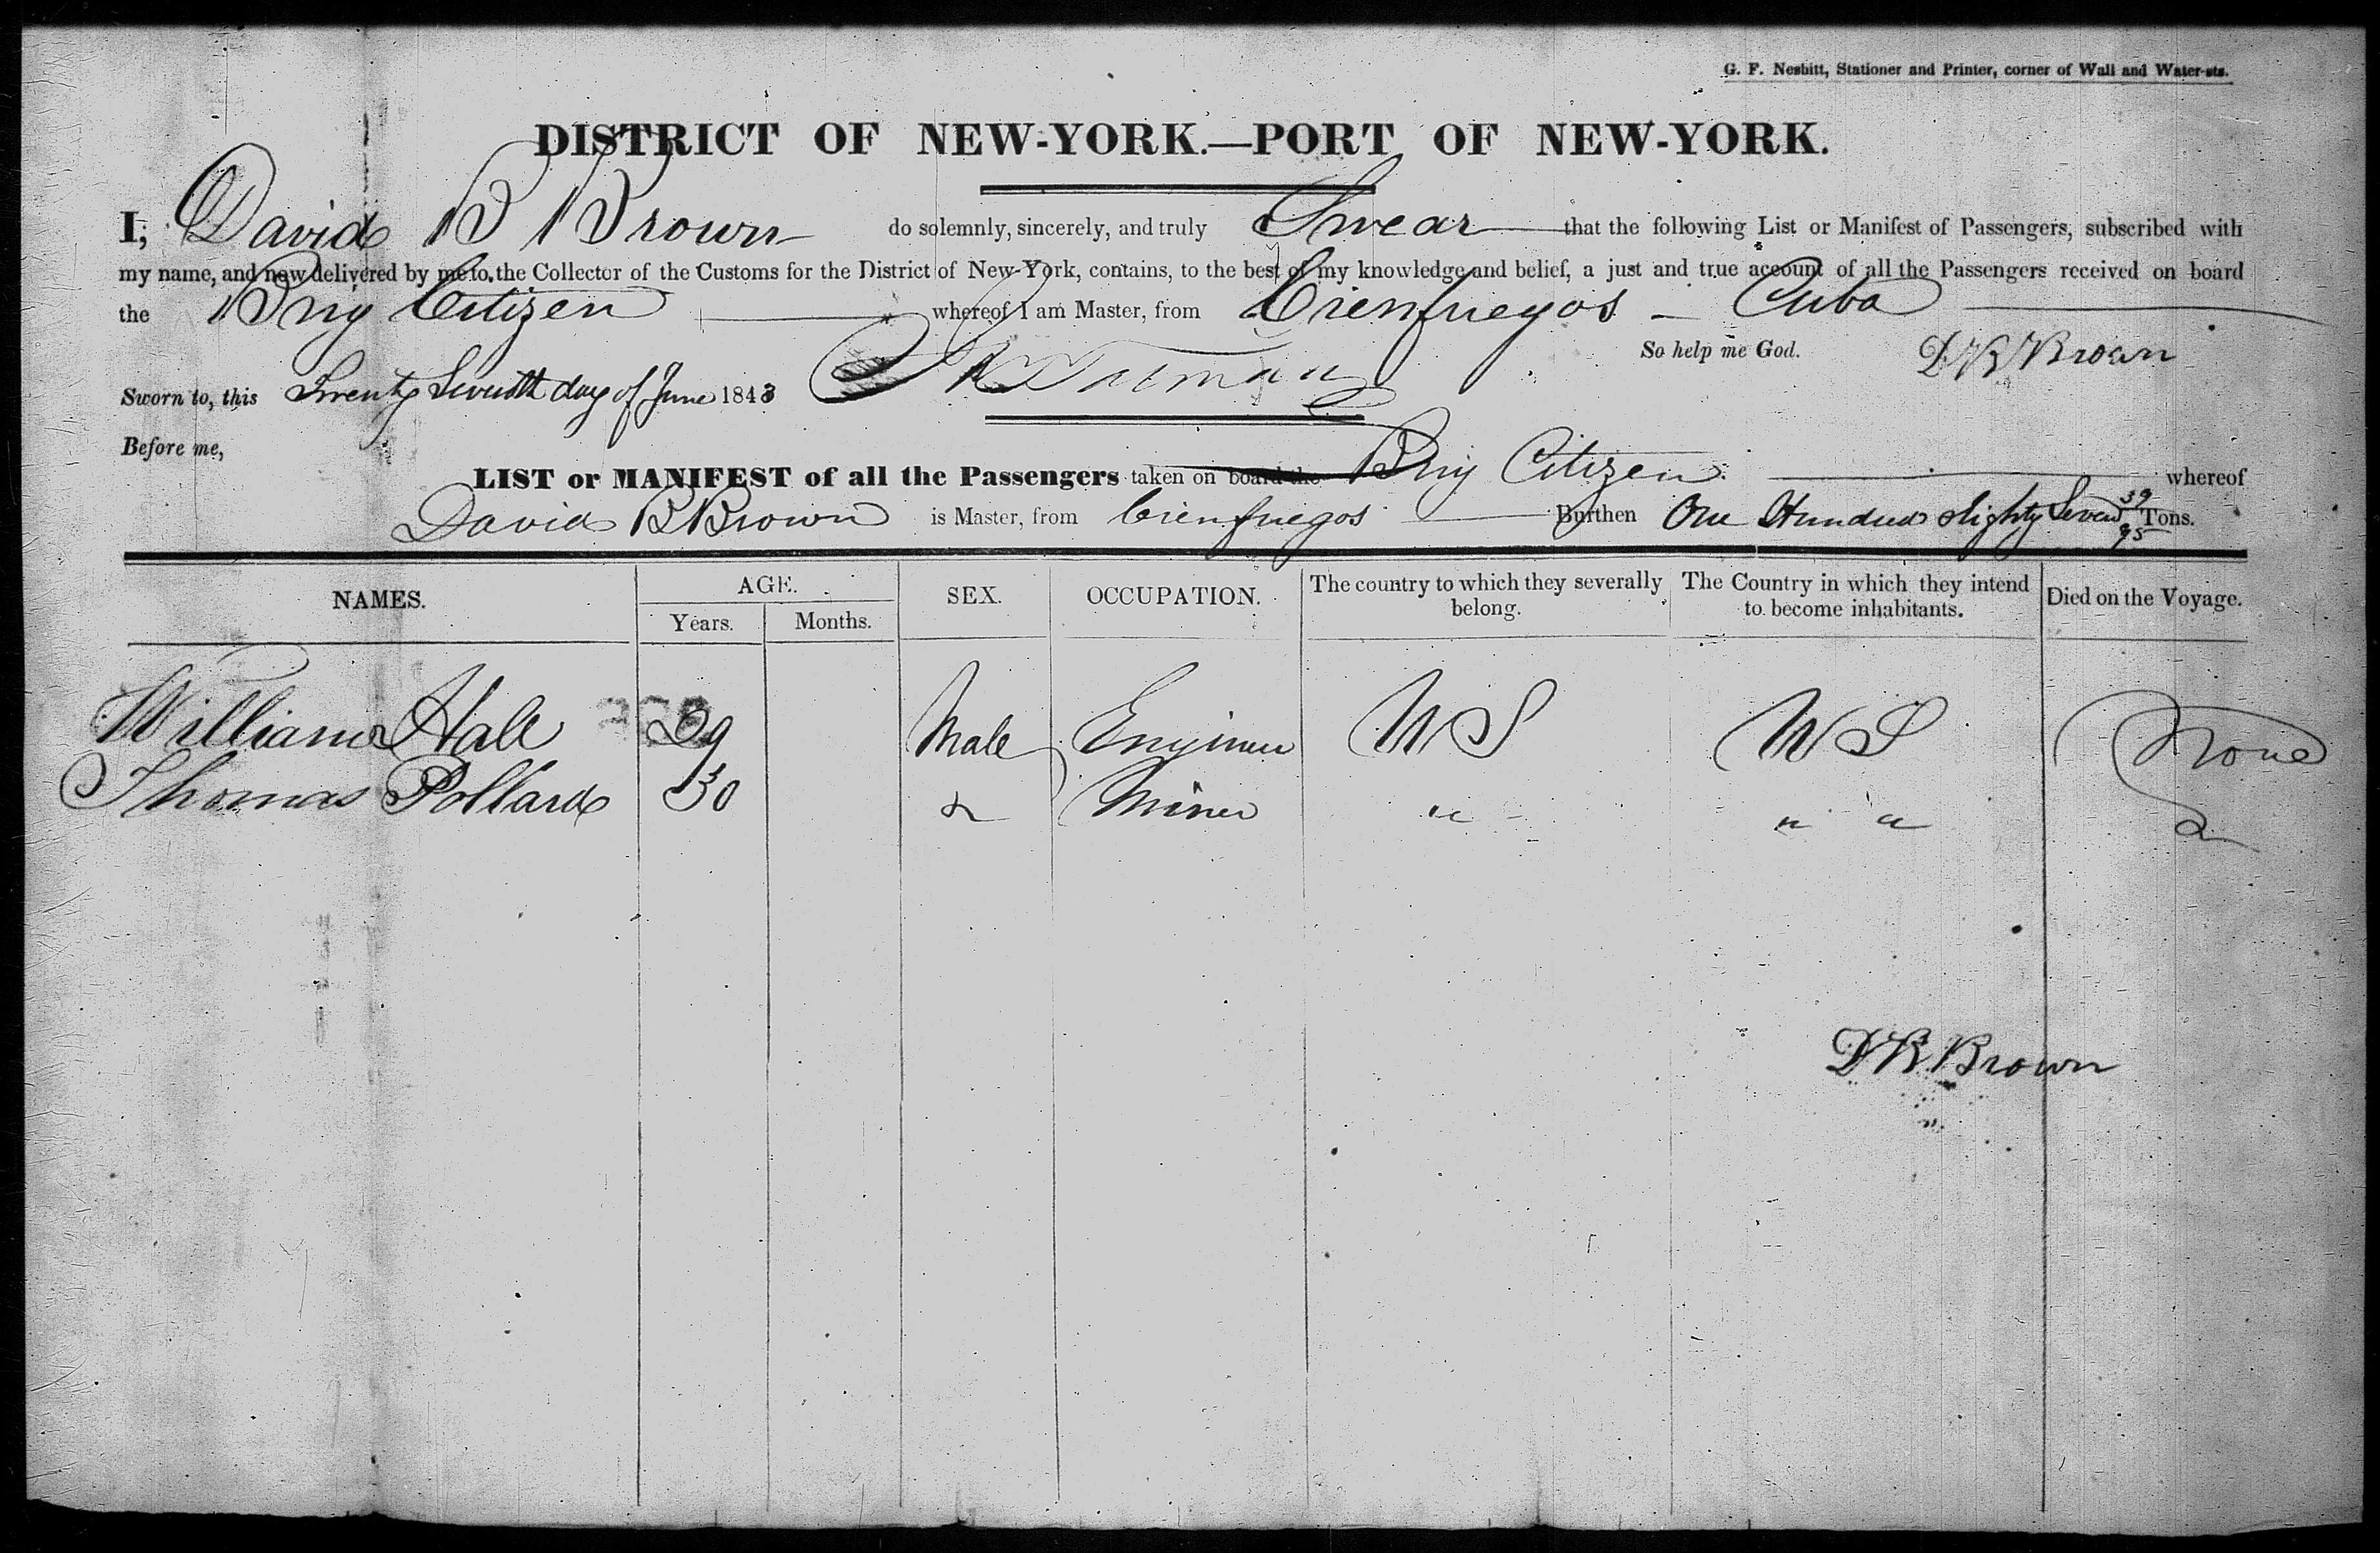 G. F. Nesbitt, Stationer and Printer, corner of Wall and Water-sts.
DISTRICT OF NEW-YORK.—PORT OF NEW-YORK.
I, David B Brown do solemnly, sincerely, and truly Swear that the following List or Manifest of Passengers, subscribed with
my name, and now delivered by me to the Collector of the Customs for the District of New-York, contains, to the best of my knowledge and belief, a just and true account of all the Passengers received on board
the Brig Citizen whereof I am Master, from Cienfuegos - Cuba
So help me God. D B Brown
Sworn to, this Twenty Seventh day of June 1843
Before me,
LIST or MANIFEST of all the Passengers taken on board the Brig Citizen whereof
David B Brown is Master, from Cienfuegos Burthen One Hundred Eighty Seven 39/95 Tons.
NAMES. AGE. SEX. OCCUPATION. The country to which they severally belong. The Country in which they intend to become inhabitants. Died on the Voyage.
Years. Months.
William Hale 29 Male Engineer U S U S None
Thomas Pollard 30 Miner " " "
D B Brown